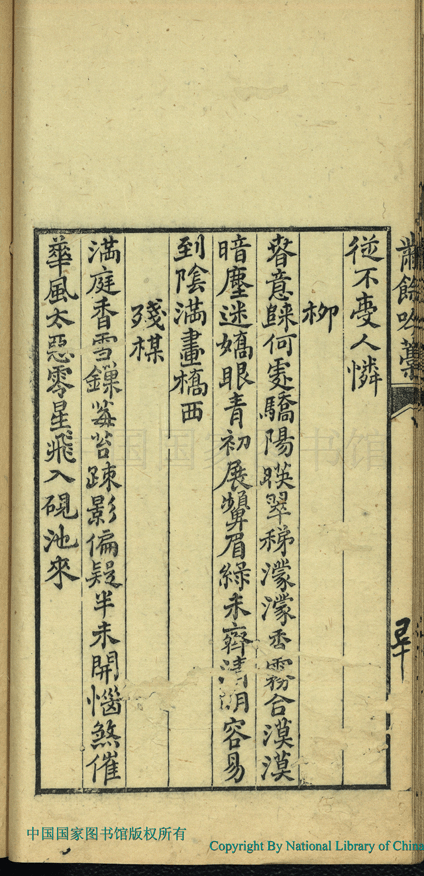 從不受人憐
柳
春意歸何處驕陽暎翠稊濛濛香霧合漠漠
暗塵迷嬌眼青初展顰眉綠未齊清明容易
到陰滿畫橋西
殘楳
滿庭香雪鏁莓苔疎影偏疑半未開惱煞催
華風太惡零星飛入硯池來
餘吟藁
中国国家图书馆
中国国家图书馆版权所有
Copyright By National Library of China